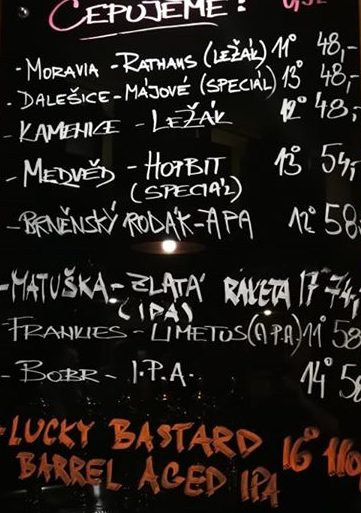 ČEPUJEME! 0,5L
- MORAVIA - RATHAUS (LEŽÁK) 11° 48,-
- DALEŠICE - MÁJOVÉ (SPECIÁL) 13° 48,-
- KAMENICE - LEŽÁK 12° 48,-
- MEDVĚD - HOPBIT 13° 54,-
(SPECIÁL)
- BRNĚNSKÝ RODÁK - APA 12° 58
- MATUŠKA - ZLATÁ RAKETA 17 74,-
(IPA)
FRANKIES - LIMETUS (APA) 11° 58
- BOBR - I.P.A. 14° 58
- LUCKY BASTARD 16° 110,
BARREL AGED IPA